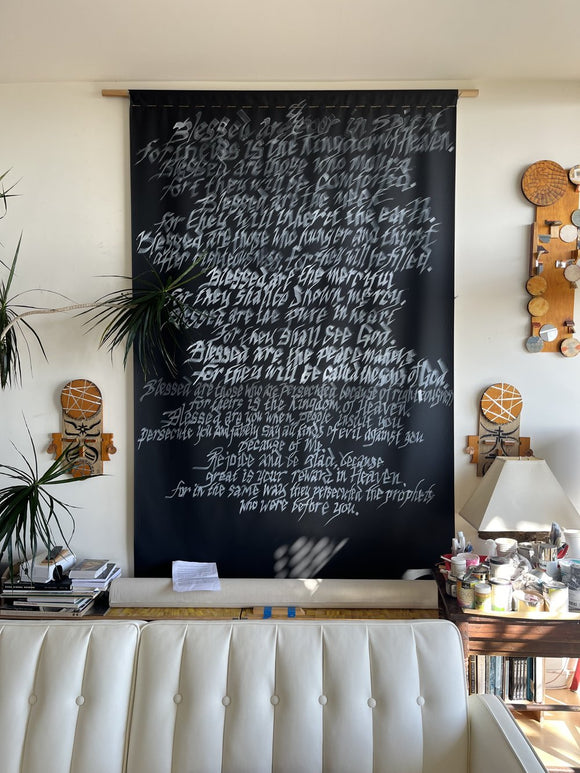 Blessed are poor in spirit
for theirs is the kingdom of Heaven.
Blessed are those who mourn
for they will be comforted.
Blessed are the meek
for they will inherit the earth.
Blessed are those who hunger and thirst
after righteousness, for they will be filled.
Blessed are the merciful
for they shall be shown mercy.
Blessed are the pure in heart
for they shall see God.
Blessed are the peacemakers
for they will be called sons of God.
Blessed are those who are persecuted because of righteousness
for theirs is the kingdom of Heaven.
Blessed are you when people insult you
persecute you and falsely say all kinds of evil against you
because of Me.
Rejoice and be glad, because
great is your reward in Heaven.
for in the same way they persecuted the prophets
who were before you.